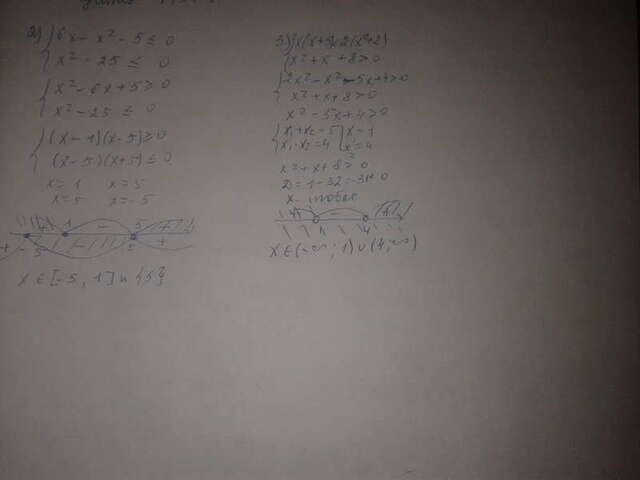 2) { 6x - x² - 5 ≤ 0
x² - 25 ≤ 0
{ x² - 6x + 5 ≥ 0
x² - 25 ≤ 0
{ (x - 1)(x - 5) ≥ 0
(x - 5)(x + 5) ≤ 0
x = 1 x = 5
x = 5 x = -5
+ 1 - 5 +
+ -5 - 5 +
x ∈ [-5, 1] ∪ {5}
3) { x(x+5)<2(x²+2)
x² + x + 8 > 0
{ 2x² - x² - 5x + 4 > 0
x² + x + 8 > 0
x² - 5x + 4 > 0
{ x₁ + x₂ = 5 { x = 1
x₁ · x₂ = 4 x = 4
x² + x + 8 > 0
D = 1 - 32 = -31 < 0
x -
+ 1 - 4 +
x ∈ (-∞; 1) ∪ (4; ∞)